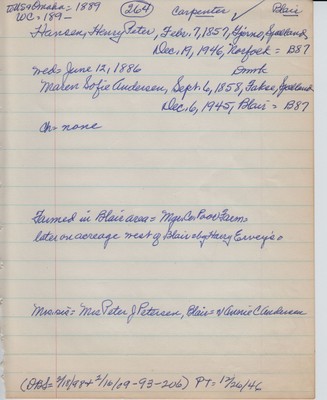 to US & Omaha = 1889 (264) Carpenter Blair
WC = 189-
Hansen, Henry Peter, Febr. 7, 1857, Sjaelland,
Dec. 19, 1946, Norfolk = B87
wed = June 12, 1886 Dmrk
Maren Sofie Andersen, Sept. 6, 1858, Fakse, Sjaelland
Dec. 6, 1945, Blair = B87
Ch = none
Farmed in Blair area = Mgr. Co Poor Farm =
later on acreage west of Blair = by Harry Ervey's =
Mrs. sis = Mrs Peter J Petersen, Blair = Annie C Andersen
(OBS = 2/16/09-93-206) PT = 12/26/46